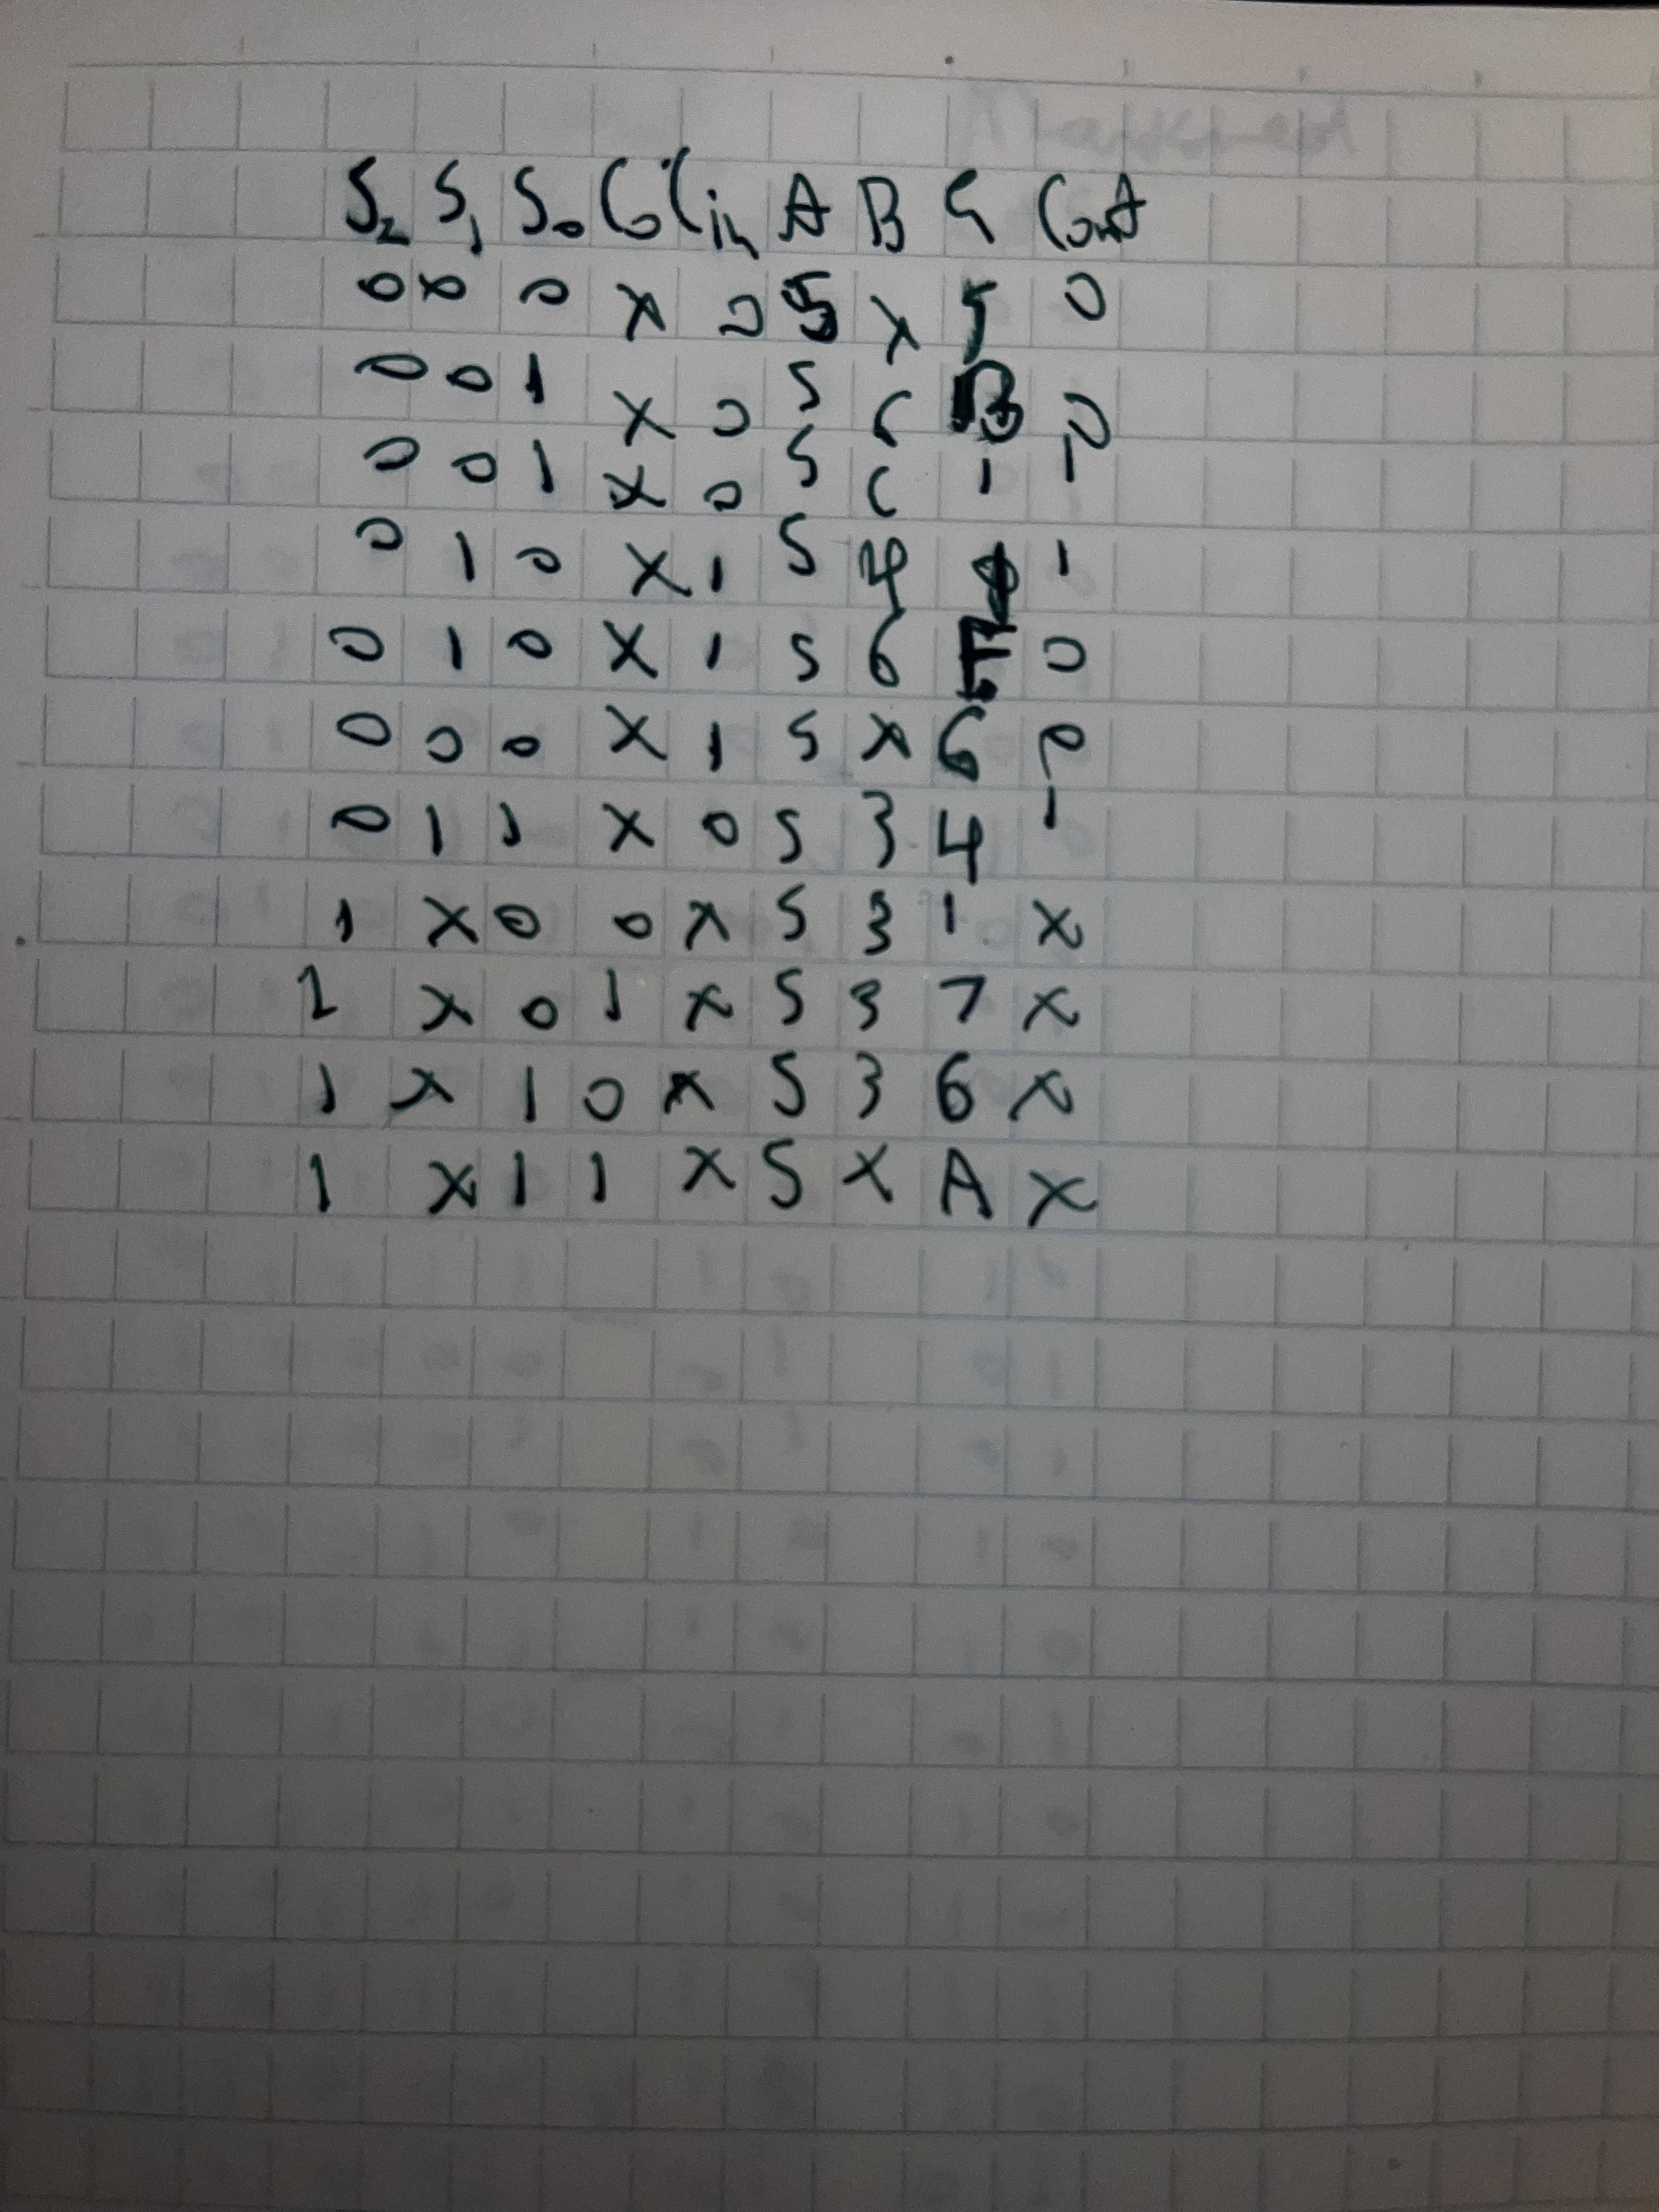 S₂ S₁ S₀ C₀ Cin A B G Cout
0 0 0 X 0 5 X 5 0
0 0 1 X 0 5 6 B 0
0 0 1 X 0 5 C 1 1
0 1 0 X 1 5 4 1 1
0 1 0 X 1 5 6 F 0
0 0 0 X 1 5 X 6 0
0 1 1 X 0 5 3 4 1
1 X 0 0 X 5 3 1 X
1 X 0 1 X 5 3 7 X
1 X 1 0 X 5 3 6 X
1 X 1 1 X 5 X A X